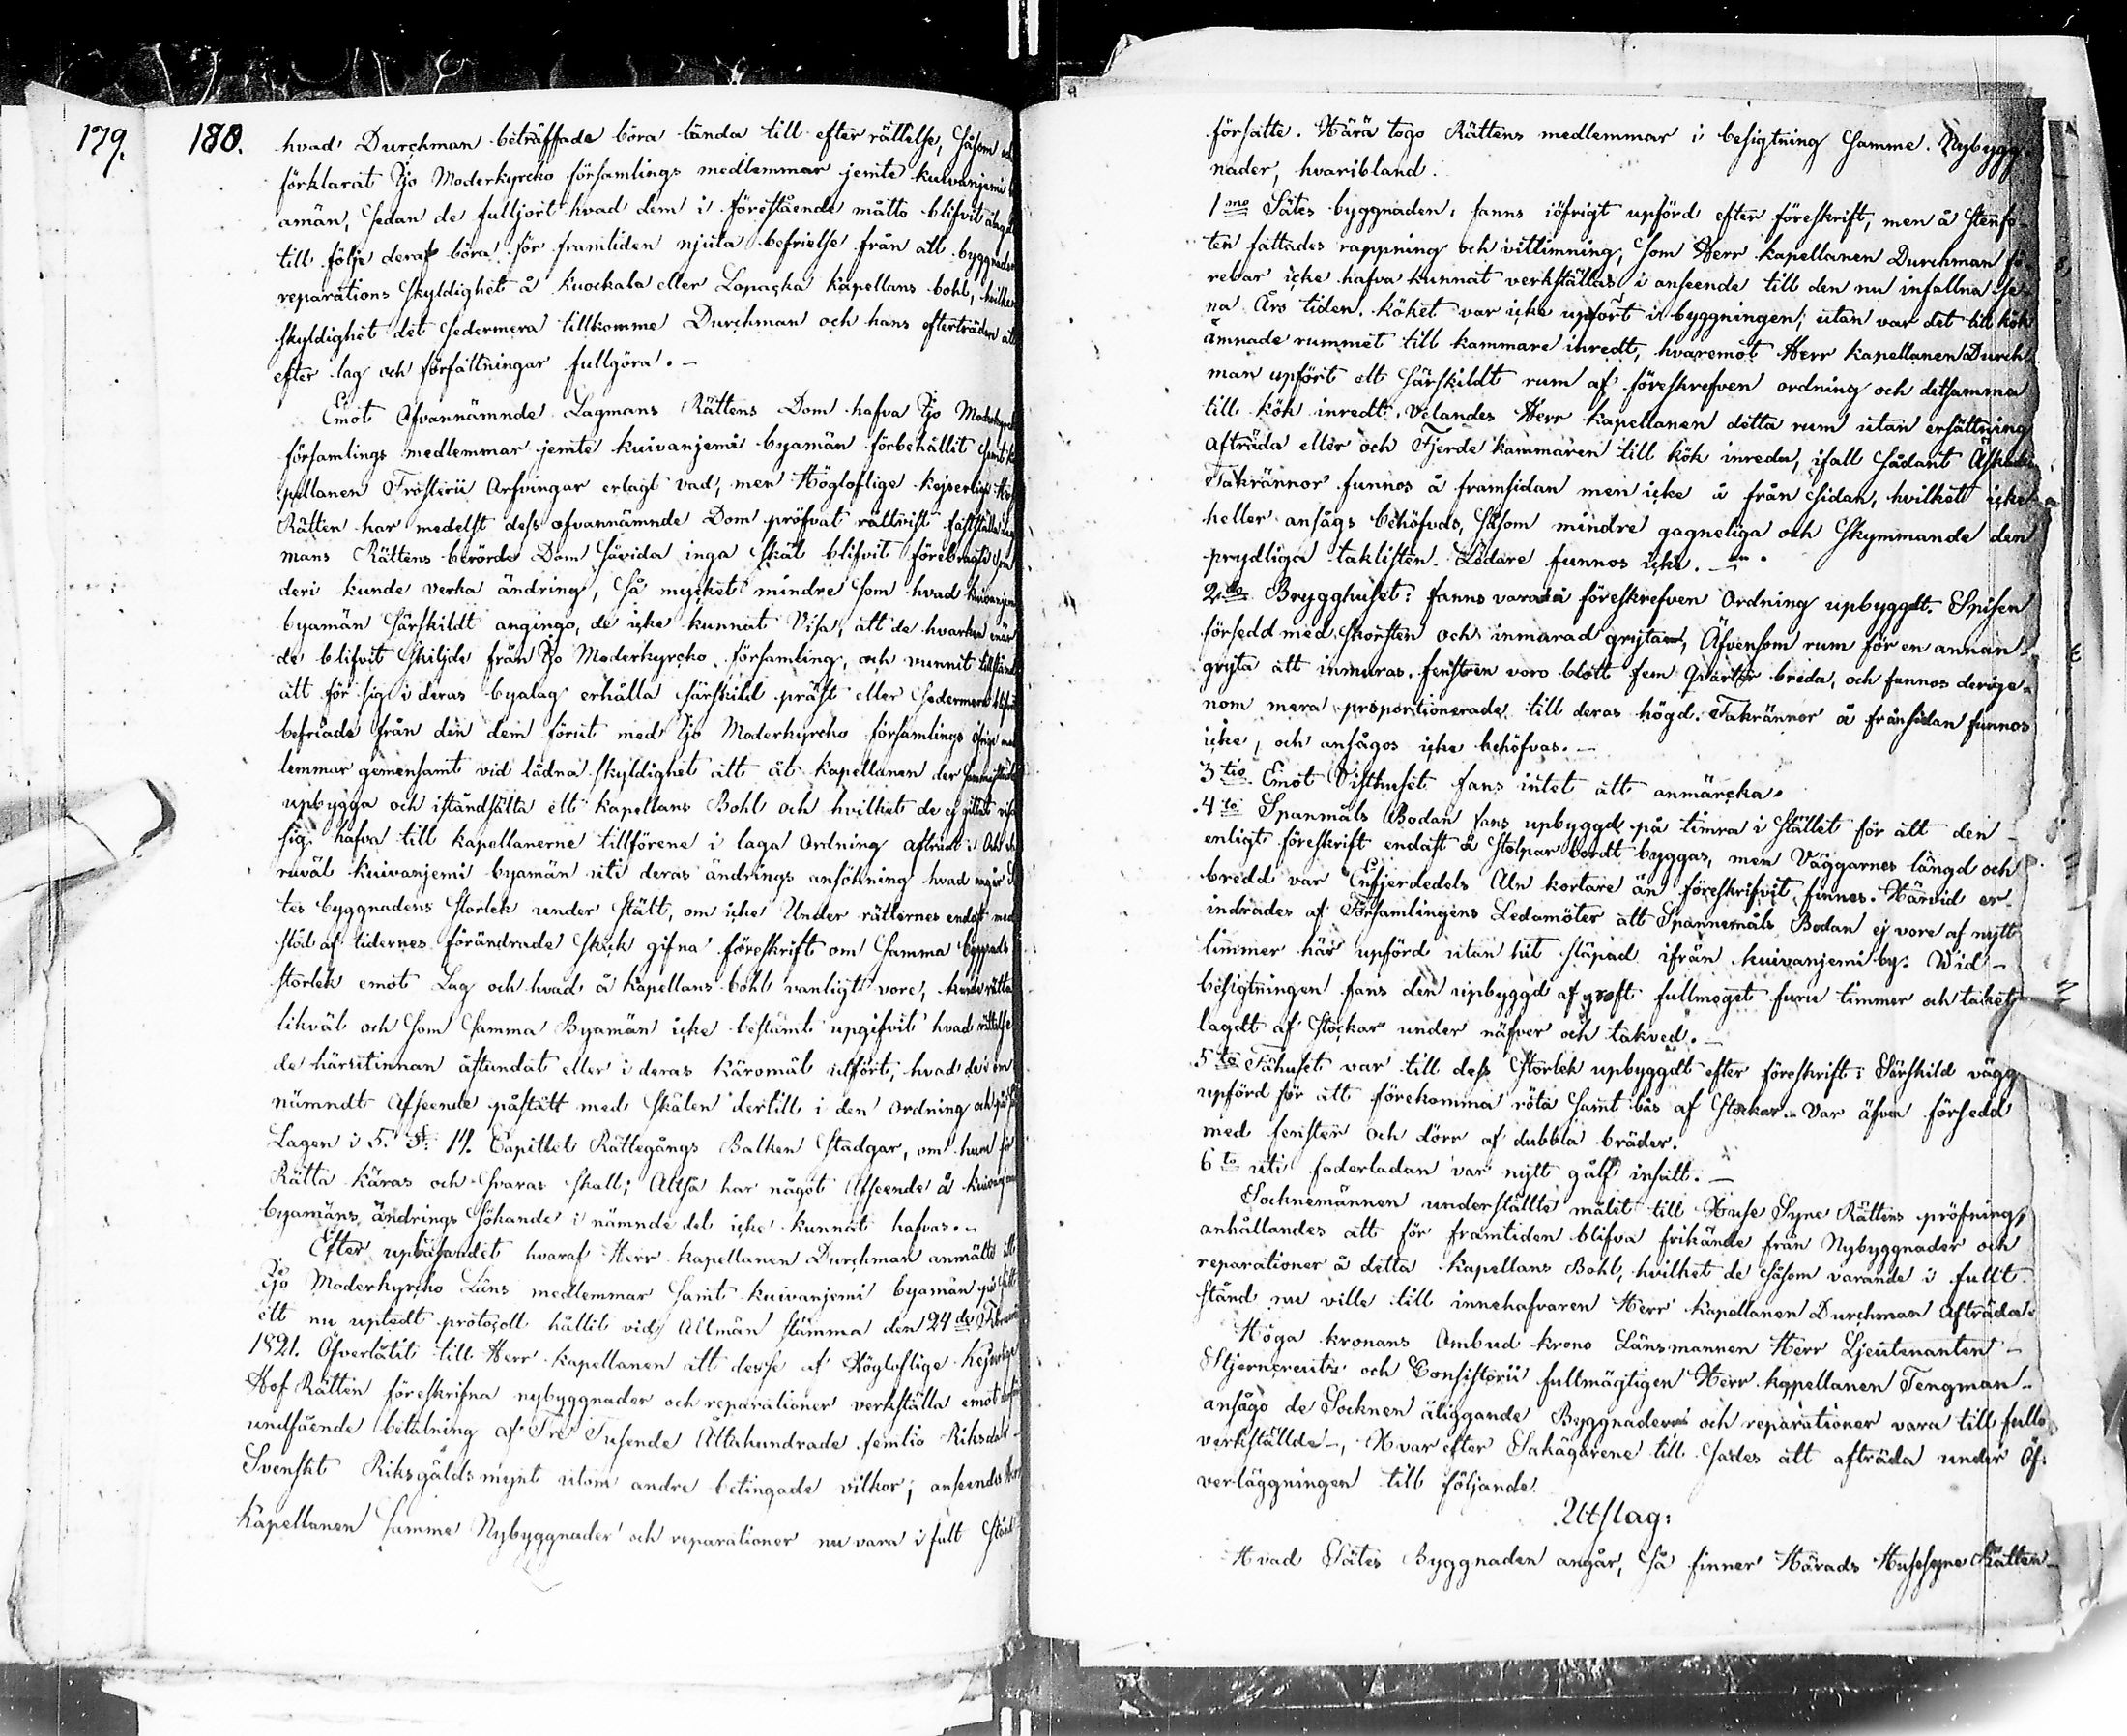 179.
180.
hvad Durchman beträffade böra lända till efter rättelse, Såsom och
förklarat Ijo Moderkyrcko församlings medlemmar jemte kuivanjemi
amän, sedan de fulljort hvad dem i förestående måtto blifvit
till följe deraf böra för framtiden njuta befrielse från all byggnads
reparations skyldighet å Kuockala eller Lopacka kapellans bohl, hvilken
skyldighet det sedermera tillkomme Durchman och hans efterträdare att
efter lag och författningar fullgöra. -
Emot Ofvannämnde Lagmans Rättens Dom hafva Ijo Moderkyrcko
församlings medlemmar jemte kuivanjemi byamän förbehållit samt ka
pellanen Frosterii Arfvingar erlagt vad, men Högloflige kejserlige Hof
Rätten har medelst dess ofvannämnde Dom pröfvat rättvist fastställa Lag
mans Rättens berörde Dom såvida inga skäl blifvit förebragte som
deri kunde verka ändring, så mycket mindre som hvad kuivanjemi
byamän särskildt angingo, de icke kunnat Visa, att de hvarken
de blifvit skiljde från Ijo Moderkyrcko församling, och vunnit tillstånd
att för sig i deras byalag erhålla särskild präst eller sedermera blifvit
befriade från den dem förut med Ijo Moderkyrcko församlings öfrige med
lemmar gemensamt vid lådna skyldighet att åt kapellanen der
upbygga och iståndsätta ett kapellans Bohl och hvilket de ej gittat
sig hafva till kapellanerne tillförene i laga Ordning afträdt: Och
ruväl kuivanjemi byamän uti deras ändrings ansökning hvad angår Sä
tes byggnadens storlek under stält, om icke Under rätternes endast med
stöd af tidernes förändrade skick gifna föreskrift om samma byggnads
storlek emot Lag och hvad å kapellans bohl vanligt vore,
likväl och som samma Byamän icke bestämt upgifvit hvad rättelse
de härutinnan åstundat eller i deras käromål utfört, hvad de i om
nämndt Afseende påstått med skälen dertill i den Ordning och på sätt
Lagen i 5. §: 14. Capitlet Rättegångs Balken stadgar, om hum för
Rätta käras och svaras skall; Altså har något Afseende å kuivanjemi
byamäns ändrings sökande i nämnde del icke kunnat hafvas. -
Efter upläsandet hvaraf Herr kapellanen Durchman anmälte att
Ijo Moderkyrcko Läns medlemmar samt kuivanjemi byamän på sätt
ett nu uptedt protocoll hållit vid Allmän stämma den 24de Februarii
1821. Öfverlåtit till Herr kapellanen att desse af Högloflige kejserlige
Hof Rätten föreskrifna nybyggnader och reparationer verkställa emot
undfående betalning af Tre Tusende Åttahundrade femtio Riksdaler
Svenskt Riksgälds mynt utom andre betingade vilkor; anseende Herr
kapellanen samme Nybyggnader och reparationer nu vara i fult stånd
försatte. Härå togo Rättens medlemmar i besigtning samme. Nybygg-
nader, hvaribland.
1mo Sätes byggnaden: fanns iöfrigt upförd efter föreskrift, men å stenfo-
ten fattades rappning och vittimning, som Herr kapellanen Durchman fö-
rebar icke hafva kunnat verkställas i anseende till den nu infallna se-
na Års tiden. köket var icke upfört i byggningen; utan var det till kök
ämnade rummet till kammare inredt, hvaremot Herr kapellanen Durch
man upfört ett särskildt rum af föreskrefven ordning och detsamma
till kök inredt. Velandes Herr kapellanen detta rum utan ersättning
afträda eller och Fjerde kammaren till kök inreda, ifall sådant Äskades
Takrännor funnos å framsidan men icke å från sidan, hvilket icke
heller ansågs behöfvas, såsom mindre gagneliga och skymmande den
prydliga taklisten. Ledare funnos icke. -
2do Brygghuset: fanns vara i föreskrefven Ordning upbyggdt. Spisen
försedd med skorsten och inmurad gryta, Äfvensom rum för en annan
gryta att inmuras. fenstren voro blott fem qvarter breda, och funnos derige-
nom mera proportionerade till deras högd. Takrännor å frånsidan funnos
icke, och ansågos icke behöfvas. -
3tio Emot Visthuset fans intet att anmärcka.
4to Spanmåls Bodan fans upbyggd på timra i stället för att den -
enligt föreskrift endast å stolpar bordt byggas, men Väggarnes längd och
bredd var Enfjerdedels Aln kortare än föreskrifvit finnes. Härvid er
indrades af Församlingens Ledamöter att Spannemåls Bodan ej vore af nytt
timmer här upförd utan hit släpad ifrån kuivanjemi by. Wid -
besigtningen fans den upbyggd af groft fullmoget furu timmer och taket
lagdt af stockar under näfver och takved. -
5to Fähuset var till dess storlek upbyggdt efter föreskrift: Särskild vägg
upförd för att förekomma röta samt bås af stockar. Var äfven försedd
med fenster och dörr af dubbla bräder.
6to uti foderladan var nytt gålf insatt. -
Socknemännen underställte målet till Huse Syne Rättens pröfning,
anhållandes att för framtiden blifva frikände från Nybyggnader och
reparationer å detta kapellans Bohl, hvilket de såsom varande i fullt
stånd nu ville till innehafvaren Herr kapellanen Durchman Afträda.
Höga kronans Ombud krono Länsmannen Herr Ljeutenanten -
Stjerncreutz och Consistorii fullmägtigen Herr kapellanen Tengman -
ansågo de Socknen åliggande Byggnader och reparationer vara till fullo
verkställde -, Hvar efter Sakägarene till sades att afträda under Öf-
verläggningen till följande.
Utslag:
Hvad Sätes Byggnaden angår, så finner Härads Husesyne Rätten -